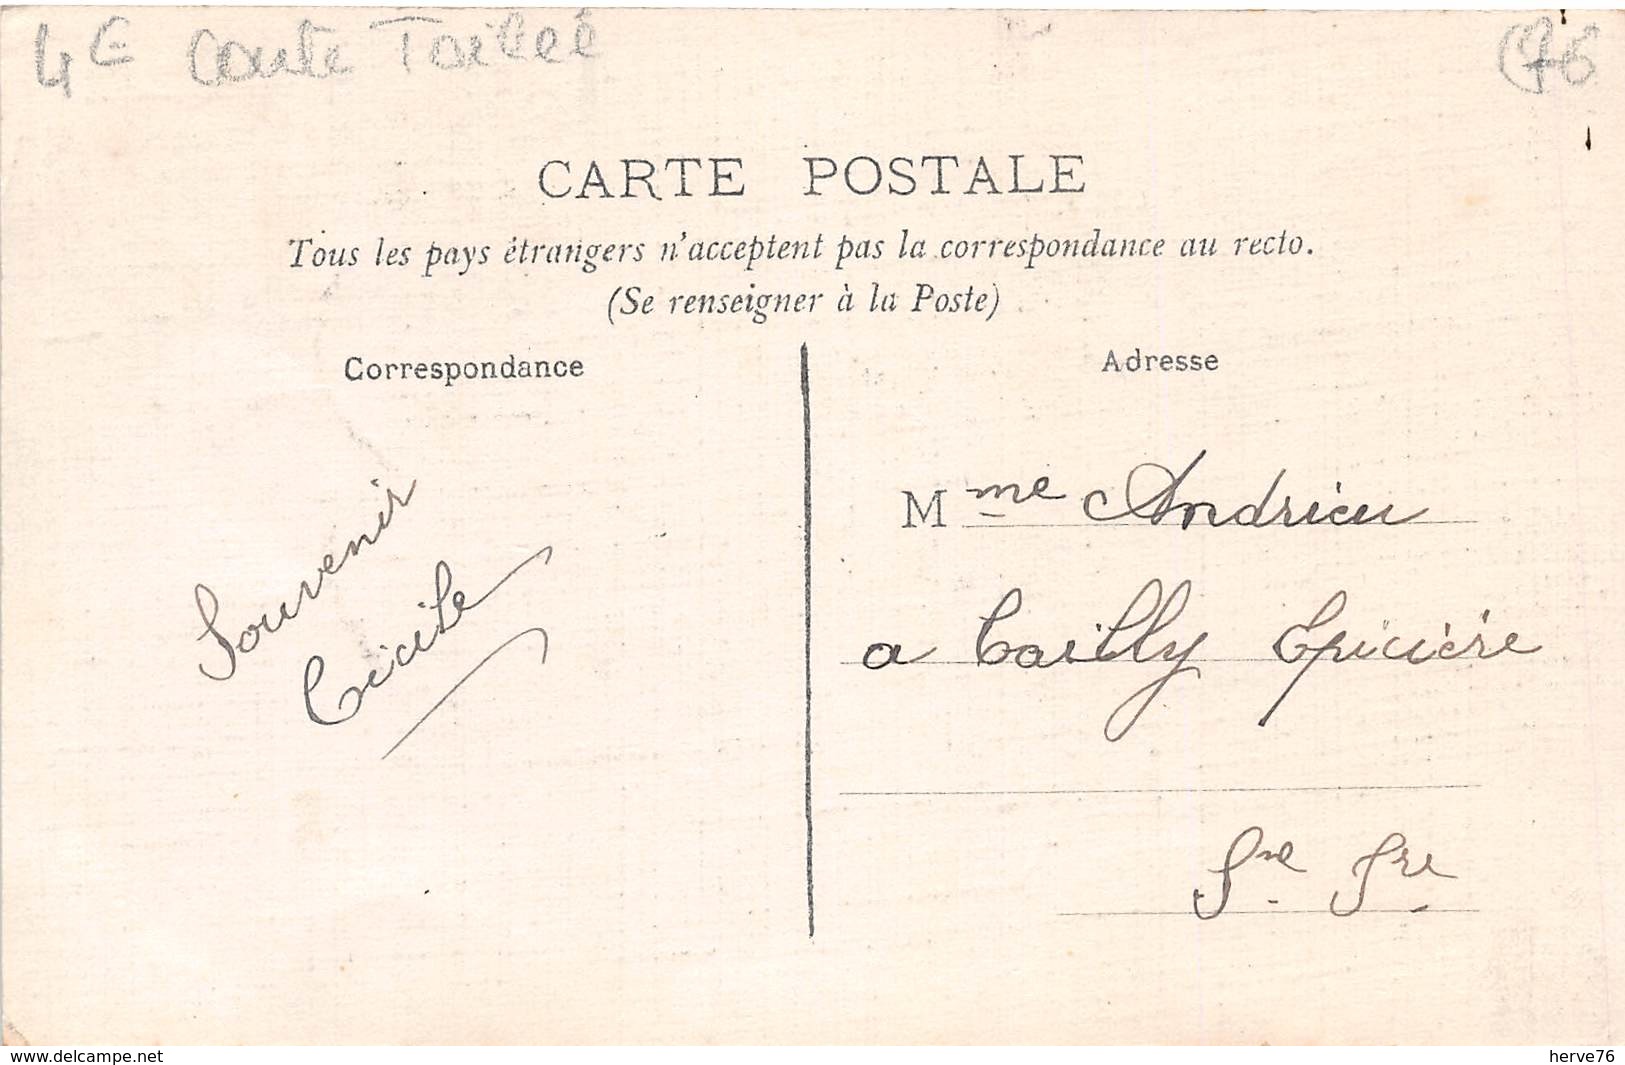 4€ carte Toilée
(76
CARTE POSTALE
Tous les pays étrangers n'acceptent pas la correspondance au recto.
(Se renseigner à la Poste)
Correspondance
Adresse
Souvenir
Cécile
Mme Andrieu
a Cailly Epicière
Sne Fre
www.delcampe.net
herve76